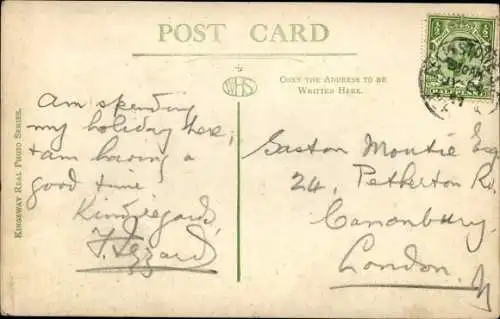 POST CARD
WHS
ONLY THE ADDRESS TO BE
WRITTEN HERE.
KINGSWAY REAL PHOTO SERIES.
Am spending
my holiday here,
& am having a
good time
Kind regards,
Gaston Montie Esq
24, Petherton Rd,
Canonbury,
London. N